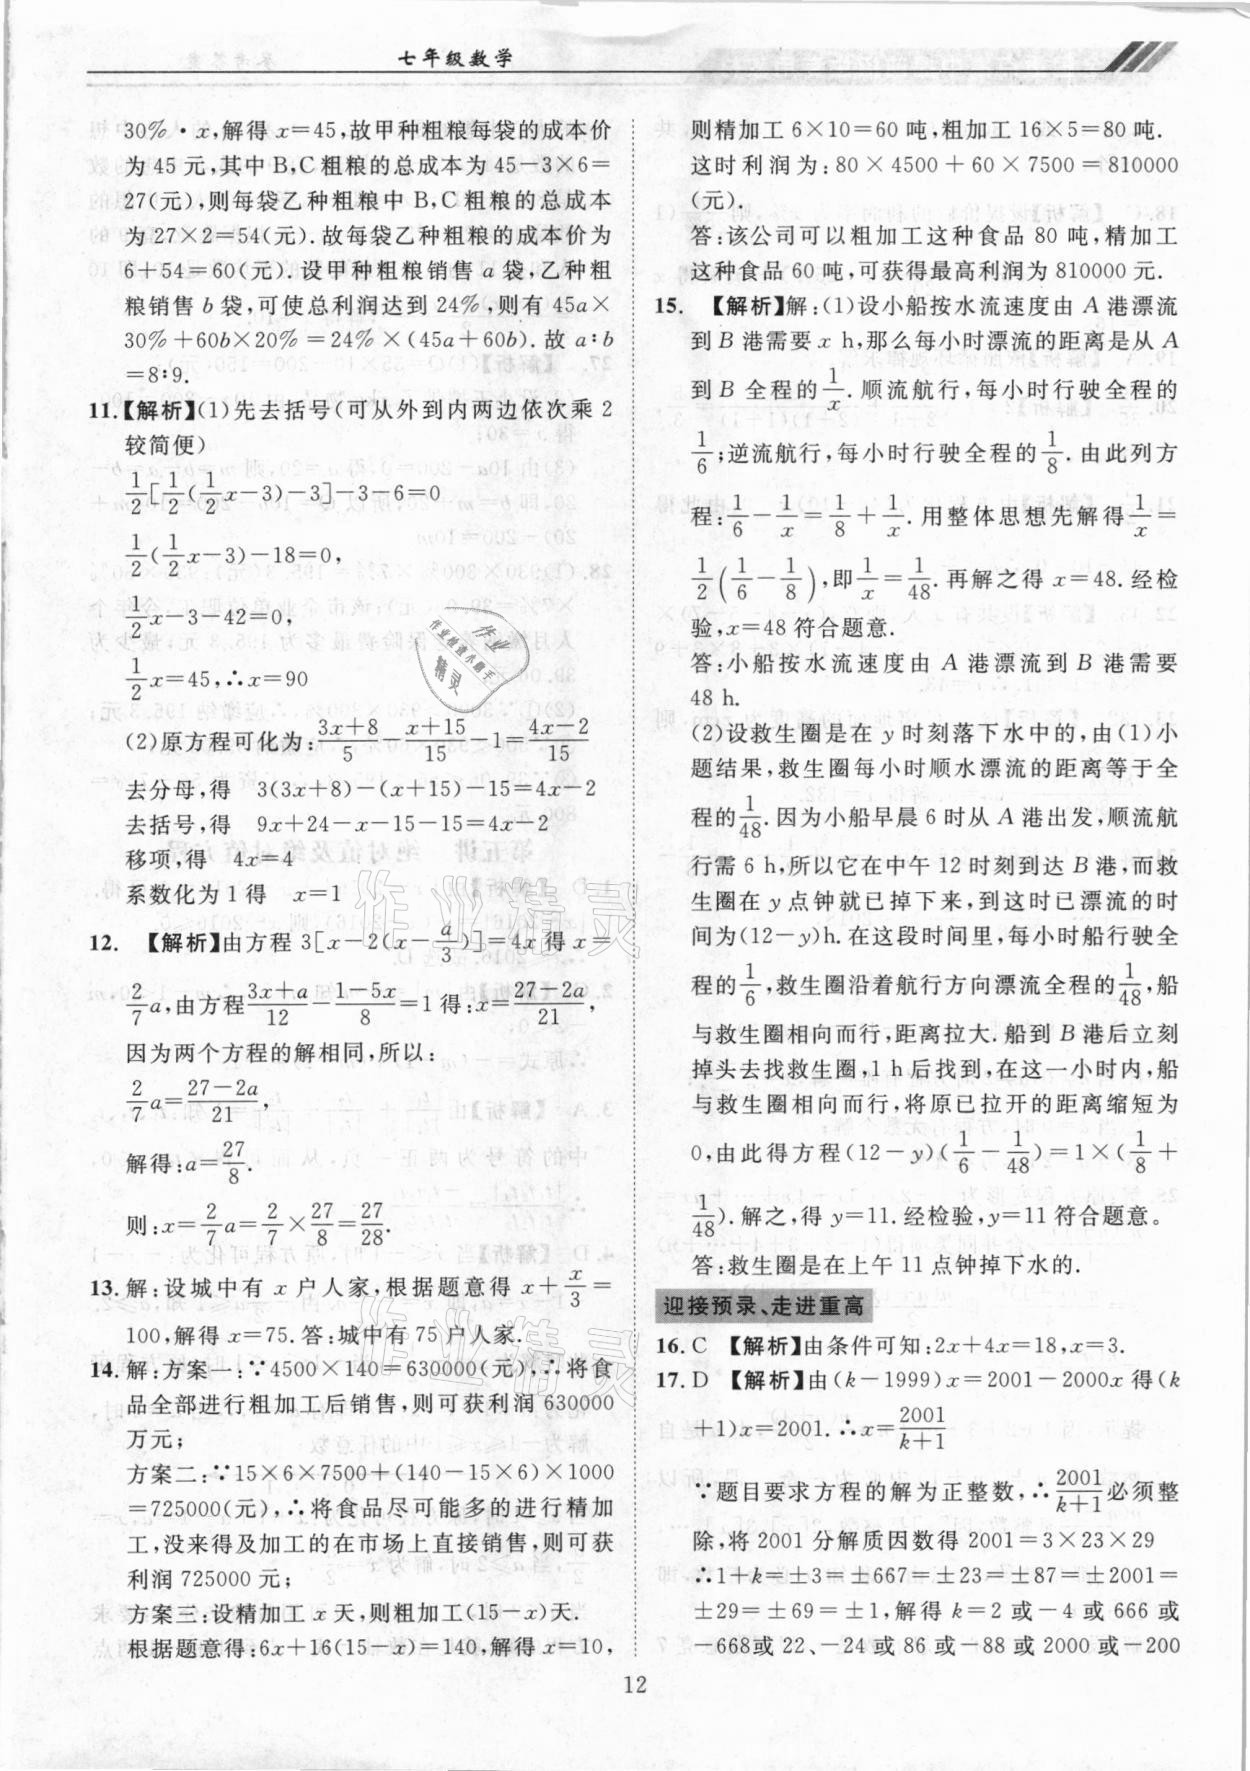 七年级数学
30%·x,解得 x=45,故甲种粗粮每袋的成本价
为 45 元,其中 B,C 粗粮的总成本为 45-3×6=
27(元),则每袋乙种粗粮中 B,C 粗粮的总成本
为 27×2=54(元). 故每袋乙种粗粮的成本价为
6+54=60(元). 设甲种粗粮销售 a 袋,乙种粗
粮销售 b 袋,可使总利润达到 24%,则有 45a×
30%+60b×20%=24%×(45a+60b). 故 a:b
=8:9.
11.【解析】(1)先去括号(可从外到内两边依次乘 2
较简便)
1/2[1/2(1/2x-3)-3]-3-6=0
1/2(1/2x-3)-18=0,
1/2x-3-42=0,
1/2x=45,∴x=90
(2)原方程可化为:(3x+8)/5-(x+15)/15-1=(4x-2)/15
去分母,得 3(3x+8)-(x+15)-15=4x-2
去括号,得 9x+24-x-15-15=4x-2
移项,得 4x=4
系数化为 1 得 x=1
12. 【解析】由方程 3[x-2(x-a/3)]=4x 得 x=
2/7a,由方程(3x+a)/12-(1-5x)/8=1 得:x=(27-2a)/21,
因为两个方程的解相同,所以:
2/7a=(27-2a)/21,
解得:a=27/8.
则:x=2/7a=2/7×27/8=27/28.
13. 解:设城中有 x 户人家,根据题意得 x+x/3=
100,解得 x=75. 答:城中有 75 户人家.
14. 解:方案一:∵4500×140=630000(元),∴将食
品全部进行粗加工后销售,则可获利润 630000
万元;
方案二:∵15×6×7500+(140-15×6)×1000
=725000(元),∴将食品尽可能多的进行精加
工,没来得及加工的在市场上直接销售,则可获
利润 725000 元;
方案三:设精加工 x 天,则粗加工(15-x)天.
根据题意得:6x+16(15-x)=140,解得 x=10,
则精加工 6×10=60 吨,粗加工 16×5=80 吨.
这时利润为:80×4500+60×7500=810000
(元).
答:该公司可以粗加工这种食品 80 吨,精加工
这种食品 60 吨,可获得最高利润为 810000 元.
15. 【解析】解:(1)设小船按水流速度由 A 港漂流
到 B 港需要 x h,那么每小时漂流的距离是从 A
到 B 全程的1/x. 顺流航行,每小时行驶全程的
1/6;逆流航行,每小时行驶全程的1/8. 由此列方
程:1/6-1/x=1/8+1/x. 用整体思想先解得1/x=
1/2(1/6-1/8),即1/x=1/48. 再解之得 x=48. 经检
验,x=48 符合题意.
答:小船按水流速度由 A 港漂流到 B 港需要
48 h.
(2)设救生圈是在 y 时刻落下水中的,由(1)小
题结果,救生圈每小时顺水漂流的距离等于全
程的1/48. 因为小船早晨 6 时从 A 港出发,顺流航
行需 6 h,所以它在中午 12 时刻到达 B 港,而救
生圈在 y 点钟就已掉下来,到这时已漂流的时
间为(12-y)h. 在这段时间里,每小时船行驶全
程的1/6,救生圈沿着航行方向漂流全程的1/48,船
与救生圈相向而行,距离拉大. 船到 B 港后立刻
掉头去找救生圈,1 h 后找到,在这一小时内,船
与救生圈相向而行,将原已拉开的距离缩短为
0,由此得方程(12-y)(1/6-1/48)=1×(1/8+
1/48). 解之,得 y=11. 经检验,y=11 符合题意。
答:救生圈是在上午 11 点钟掉下水的.
迎接预录、走进重高
16. C 【解析】由条件可知:2x+4x=18,x=3.
17. D 【解析】由(k-1999)x=2001-2000x 得(k
+1)x=2001. ∴x=2001/(k+1)
∵题目要求方程的解为正整数,∴2001/(k+1)必须整
除,将 2001 分解质因数得 2001=3×23×29
∴1+k=±3±667=±23=±87=±2001=
±29=±69=±1,解得 k=2 或-4 或 666 或
-668或 22、-24 或 86 或-88 或 2000 或-200
12
作业精灵
作业精灵